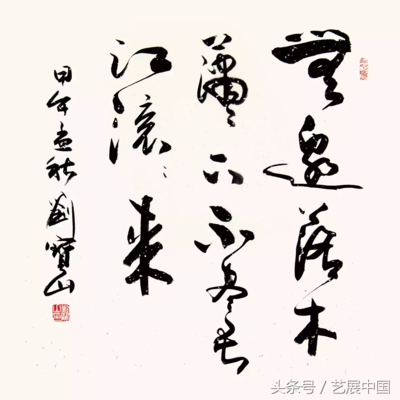 無邊落木
蕭〻下不盡長
江滚〻来
甲午孟秋劉寶山
头条号 / 艺展中国